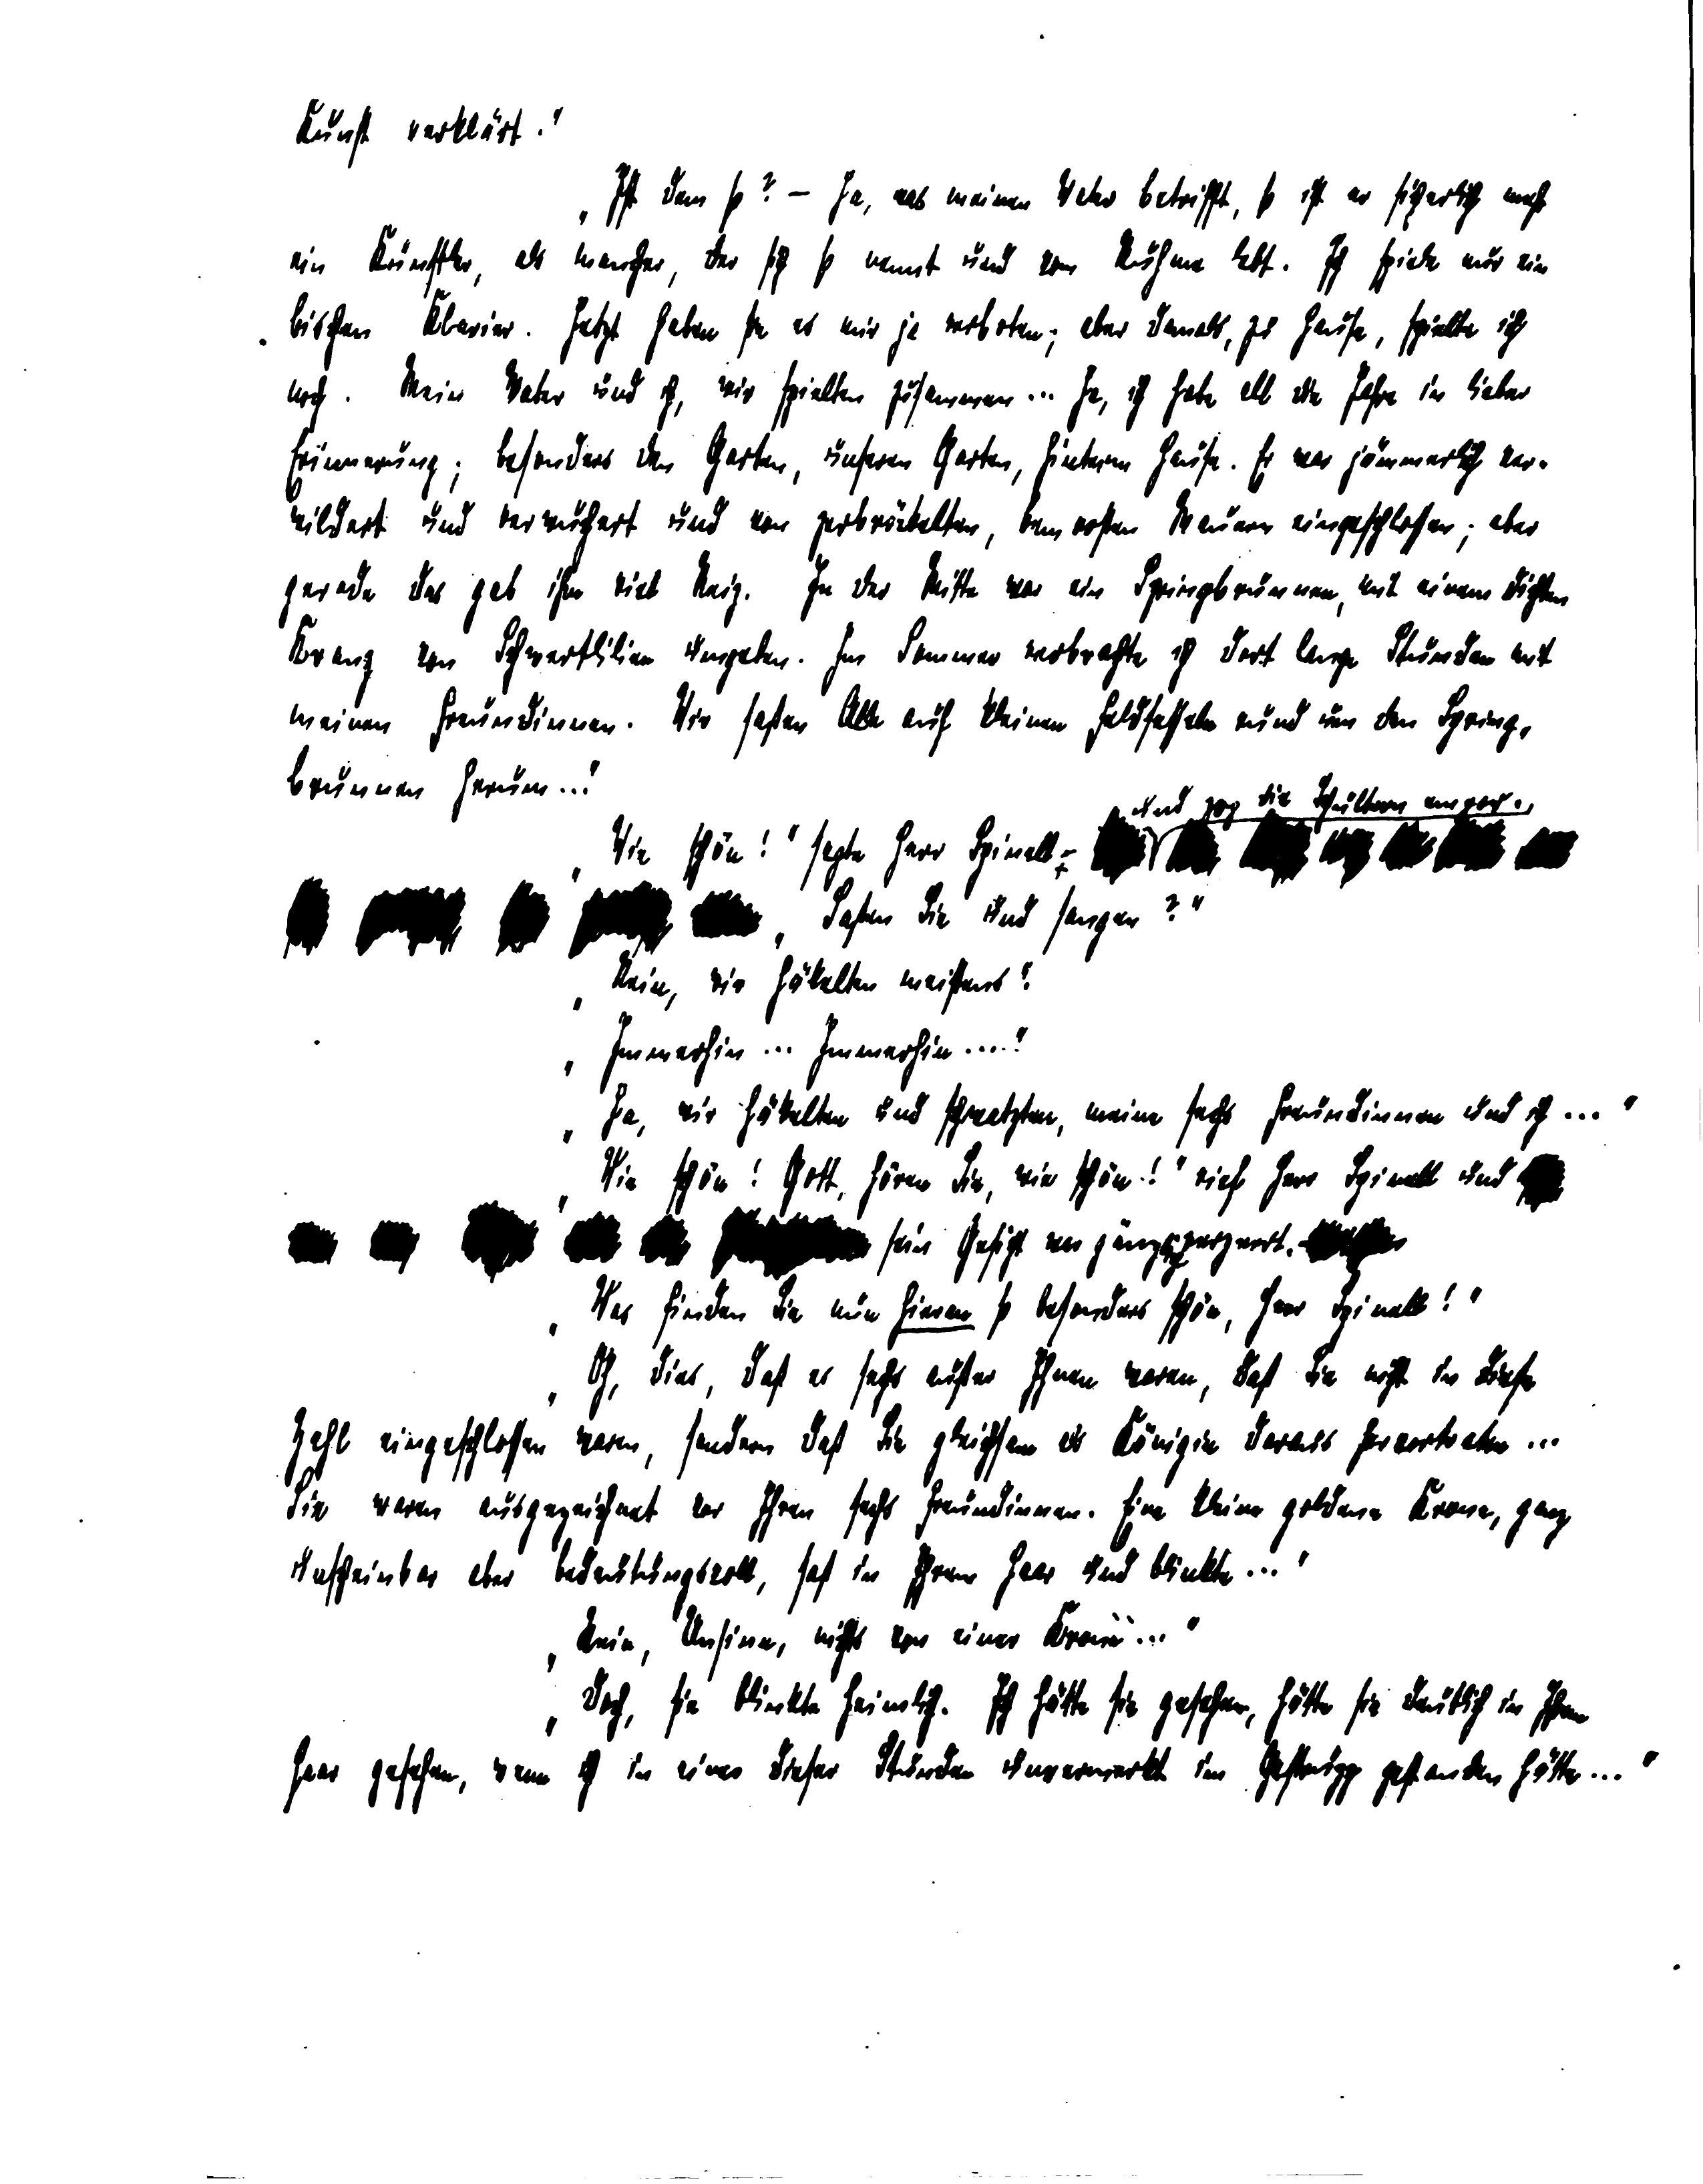 Kunst verklärt."
„Ist dem so? – Ja, was meinen Vater betrifft, so ist er sicherlich mehr
ein Künstler, als mancher, der sich so nennt und vom Ruhme lebt. Ich spiele nur ein
bischen Klavier. Jetzt haben sie es mir ja verboten; aber damals, zu Hause, spielte ich
noch. Mein Vater und ich, wir spielten zusammen... Ja, ich habe all die Jahre in lieber
Erinnerung; besonders den Garten, unseren Garten, hinterm Hause. Er war jämmerlich ver-
wildert und verwuchert und von zerbröckelten, bemoosten Mauern eingeschlossen; aber
gerade das gab ihm viel Reiz. In der Mitte war ein Springbrunnen, mit einem dichten
Kranz von Schwertlilien umgeben. Im Sommer verbrachte ich dort lange Stunden mit
meinen Freundinnen. Wir saßen Alle auf kleinen Feldsesseln rund um den Spring-
brunnen herum..."
und zog die Schultern empor.
„Wie schön!" sagte Herr Spinell
„Saßen Sie und sangen?"
„Nein, wir häkelten meistens."
„Immerhin... Immerhin...."
„Ja, wir häkelten und schwatzten, meine sechs Freundinnen und ich..."
„Wie schön! Gott, hören Sie, wie schön!" rief Herr Spinell und
sein Gesicht war gänzlich verzerrt.
„Was finden Sie nun hieran so besonders schön, Herr Spinell!"
„Oh, dies, daß es sechs außer Ihnen waren, daß Sie nicht in diese
Zahl eingeschlossen waren, sondern daß Sie gleichsam als Königin daraus hervortraten...
Sie waren ausgezeichnet vor Ihren sechs Freundinnen. Eine kleine goldene Krone, ganz
unscheinbar aber bedeutungsvoll, saß in Ihrem Haar und blinkte..."
„Nein, Unsinn, nichts von einer Krone..."
„Doch, sie blinkte heimlich. Ich hätte sie gesehen, hätte sie deutlich in Ihrem
Haar gesehen, wenn ich in einer dieser Stunden unvermerkt im Gestrüpp gestanden hätte..."